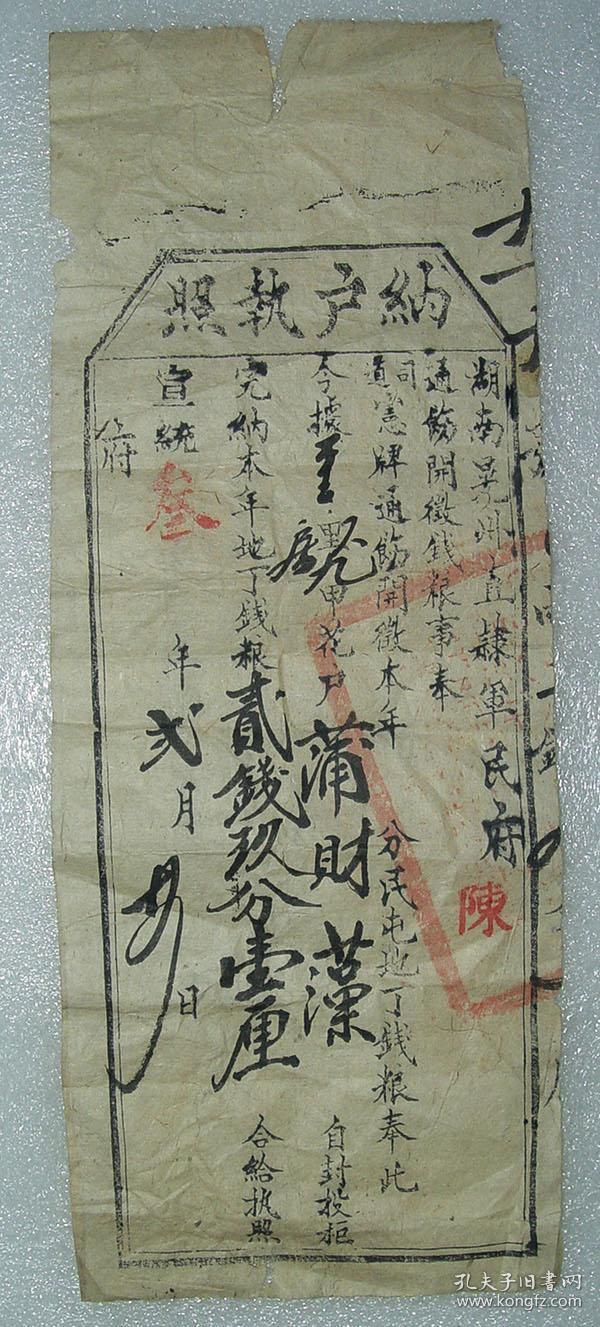 納户執照
湖南晃州直隸軍民府陳
通飭開徵錢粮事奉
司道憲牌通飭開徵本年分民屯地丁錢粮奉此
今據里甲花户蒲財藻自封投柜
完納本年地丁錢粮貳錢玖分壹厘合給执照
宣統叁年弍月日
府
孔夫子旧書网
www.kongfz.com